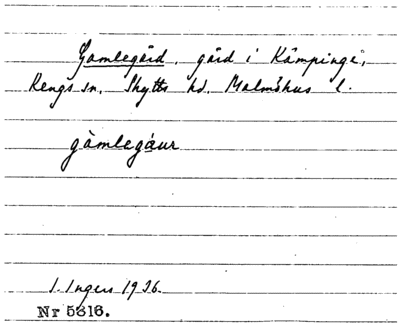 Gamlegård, gård i Kämpinge,
Rengs sn. Skytts hd. Malmöhus l.
gàmlegáur
I. Ingers 1936.
Nr 5816.